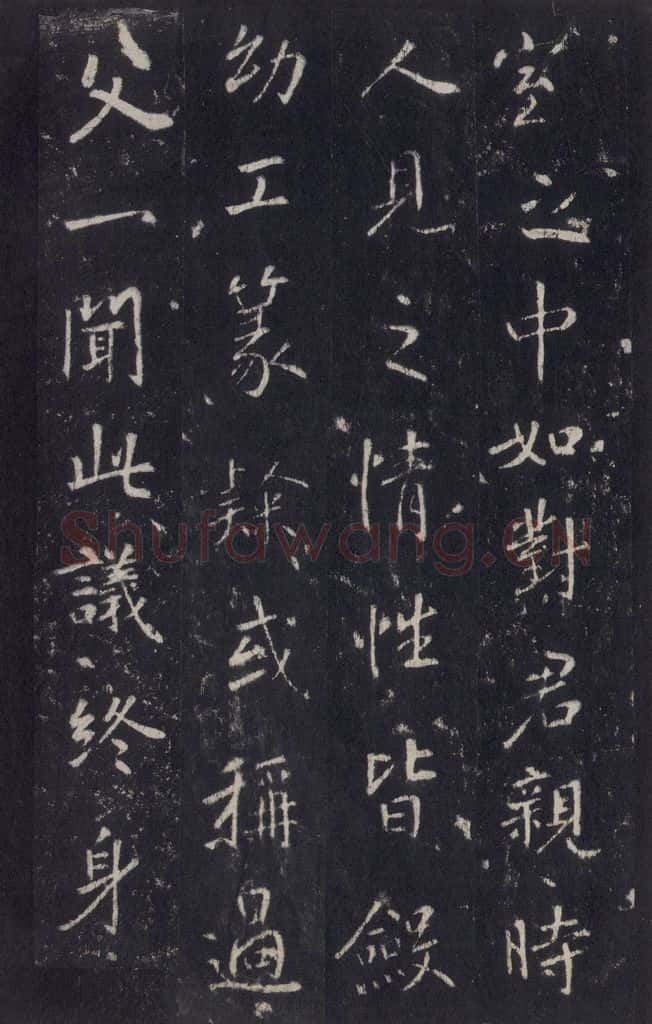 室之中如對君親時
人見之情性皆斂
幼工篆隸或稱過
父一聞此議終身
Shufawang.CN